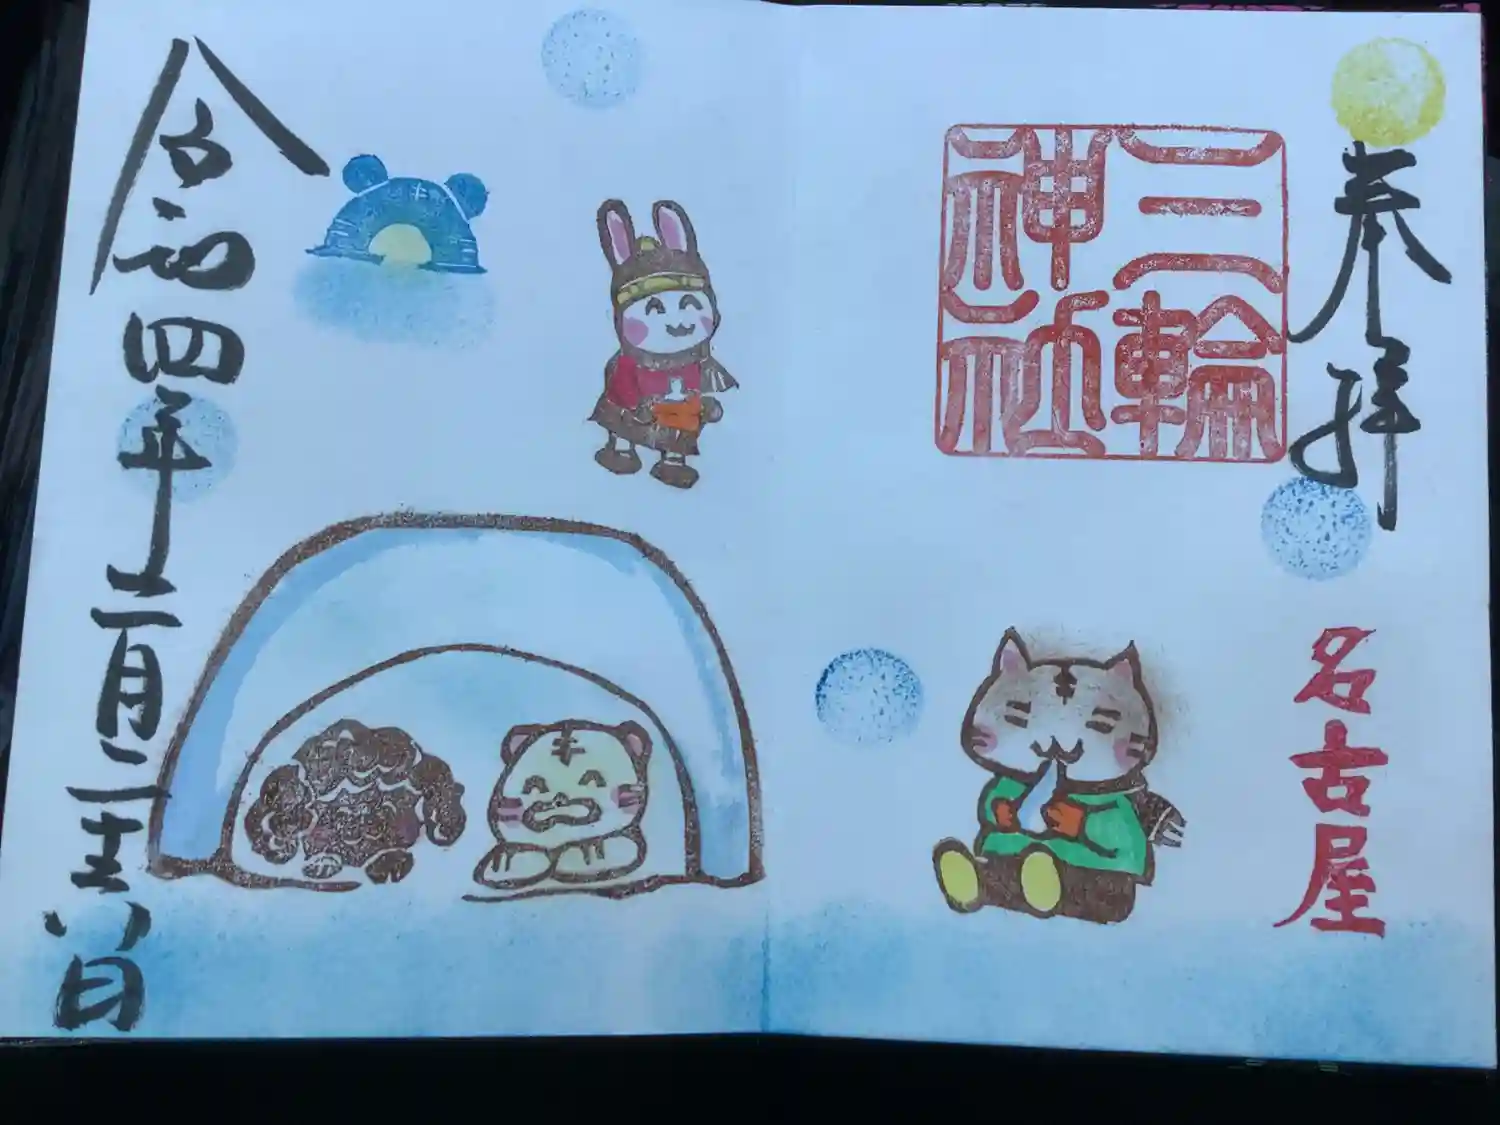 奉拝
三輪
神社
名古屋
令和四年二月二十八日